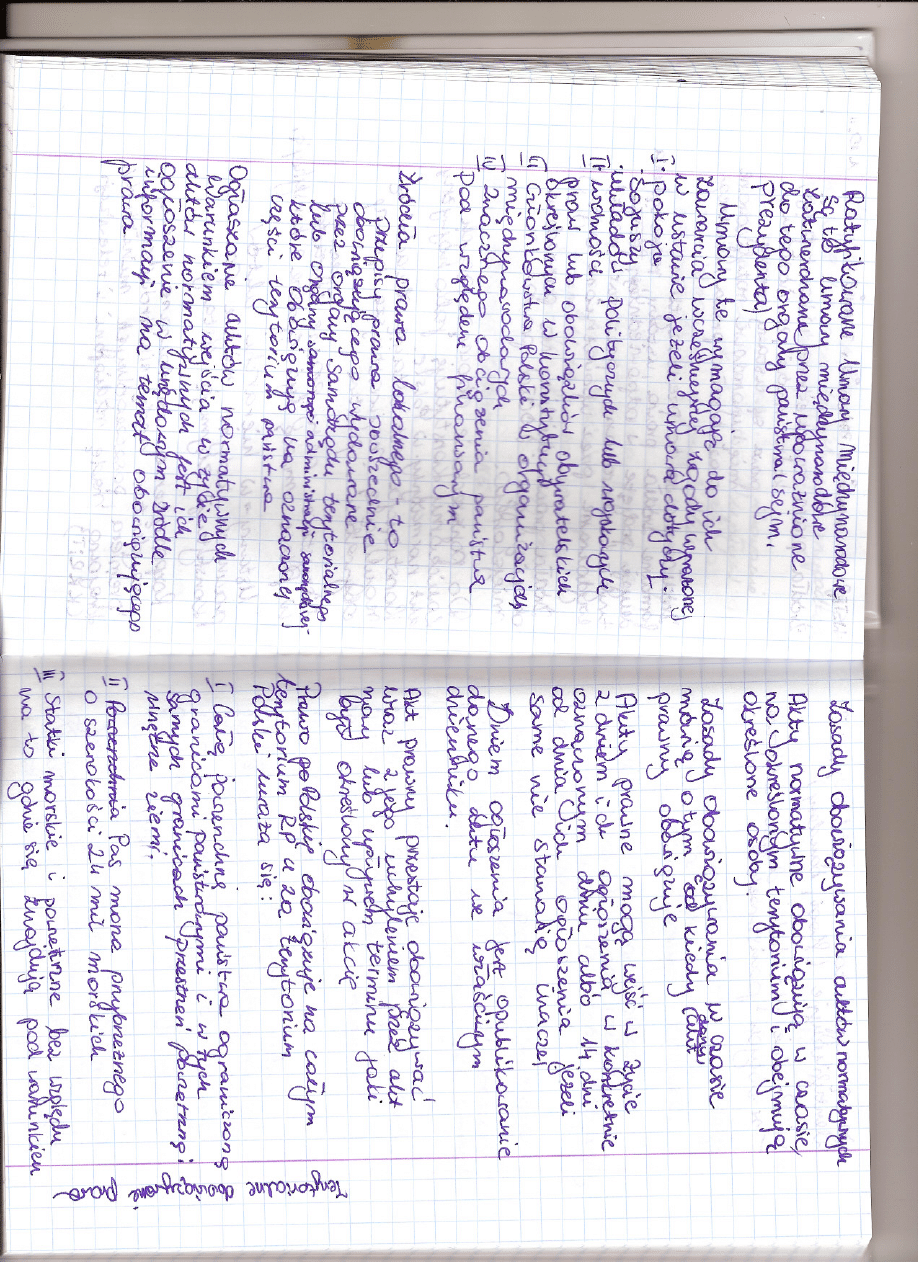 Ratyfikowane Umowy Międzynarodowe
są to umowy międzynarodowe
zatwierdzone przez upoważnione
do tego organy państwa (sejm,
Prezydenta)
Umowy te wymagają do ich
zawarcia wcześniejszej zgody wyrażonej
w ustawie jeżeli umowa dotyczy:
I pokoju
sojuszy
układów politycznych lub wojskowych
II wolności
praw lub obowiązków obywatelskich
określonych w konstytucji
III Członkostwa Polski w organizacjach
międzynarodowych
IV Znacznego obciążenia państwa
pod względem finansowym
Źródła prawa lokalnego - to
przepisy prawa powszechnie
obowiązującego wydawane
przez organy samorządu terytorialnego
lub organy administracji
które obowiązują na oznaczonej
części terytorium państwa
Ogłaszanie aktów normatywnych
Warunkiem wejścia w życie
aktów normatywnych jest ich
ogłoszenie w urzędowym źródle
informacji na temat obowiązującego
prawa
Zasady obowiązywania aktów normatywnych
Akty normatywne obowiązują w czasie,
na określonym terytorium i obejmują
określone osoby.
Zasady obowiązywania w czasie
mówią o tym od kiedy dany akt
prawny obowiązuje
Akty prawne mogą wejść w życie
z dniem ich ogłoszenia w konkretnie
oznaczonym dniu albo 14 dni
od dnia ich ogłoszenia jeżeli
same nie stanowią inaczej
Dniem ogłoszenia jest opublikowanie
danego aktu we właściwym
dzienniku.
Akt prawny przestaje obowiązywać
wraz z jego uchyleniem przez akt
nowy lub upływem terminu jaki
był określony w akcie
Prawo polskie obowiązuje na całym
terytorium RP a za terytorium
Polski uważa się:
I Całą jednostkę państwa ograniczoną
granicami państwowymi i w tych
samych granicach przestrzeń powietrzną i
wnętrze ziemi.
II Pas morza przybrzeżnego
o szerokości 24 mil morskich
III Statki morskie i powietrzne bez względu
na to gdzie się znajdują pod warunkiem
Terytorialne
obowiązywanie
prawa